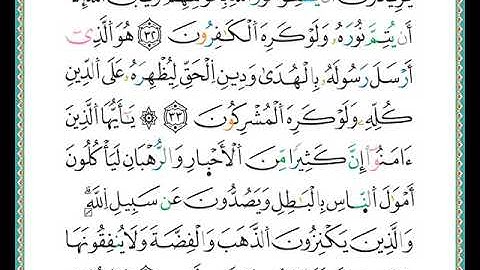 أَن يُتِمَّ نُورَهُۥ وَلَوْ كَرِهَ ٱلْكَـٰفِرُونَ ٣٢ هُوَ ٱلَّذِىٓ
أَرْسَلَ رَسُولَهُۥ بِٱلْهُدَىٰ وَدِينِ ٱلْحَقِّ لِيُظْهِرَهُۥ عَلَى ٱلدِّينِ
كُلِّهِۦ وَلَوْ كَرِهَ ٱلْمُشْرِكُونَ ٣٣ ۞ يَـٰٓأَيُّهَا ٱلَّذِينَ
ءَامَنُوٓا۟ إِنَّ كَثِيرًا مِّنَ ٱلْأَحْبَارِ وَٱلرُّهْبَانِ لَيَأْكُلُونَ
أَمْوَٰلَ ٱلنَّاسِ بِٱلْبَـٰطِلِ وَيَصُدُّونَ عَن سَبِيلِ ٱللَّهِ ۗ
وَٱلَّذِينَ يَكْنِزُونَ ٱلذَّهَبَ وَٱلْفِضَّةَ وَلَا يُنفِقُونَهَا